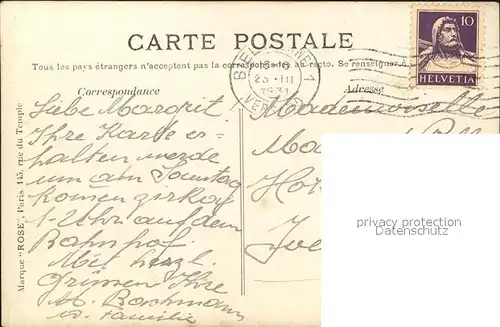 10
HELVETIA
CARTE POSTALE
Tous les pays étrangers n'acceptent pas la correspondance au recto. Se renseigner à
BIEL 1
23. III
1931
Correspondance
Adresse
Marque "ROSE", Paris, 145, rue du Temple
Liebe Margrit
Ihre Karte er-
halten werde
um am Sonntag
komen zirka
1-2 Uhr auf dem
Bahnhof.
Mit herzl.
Grüssen Ihre
M. Bachmann
u. Familie
Mademoiselle
privacy protection
Datenschutz